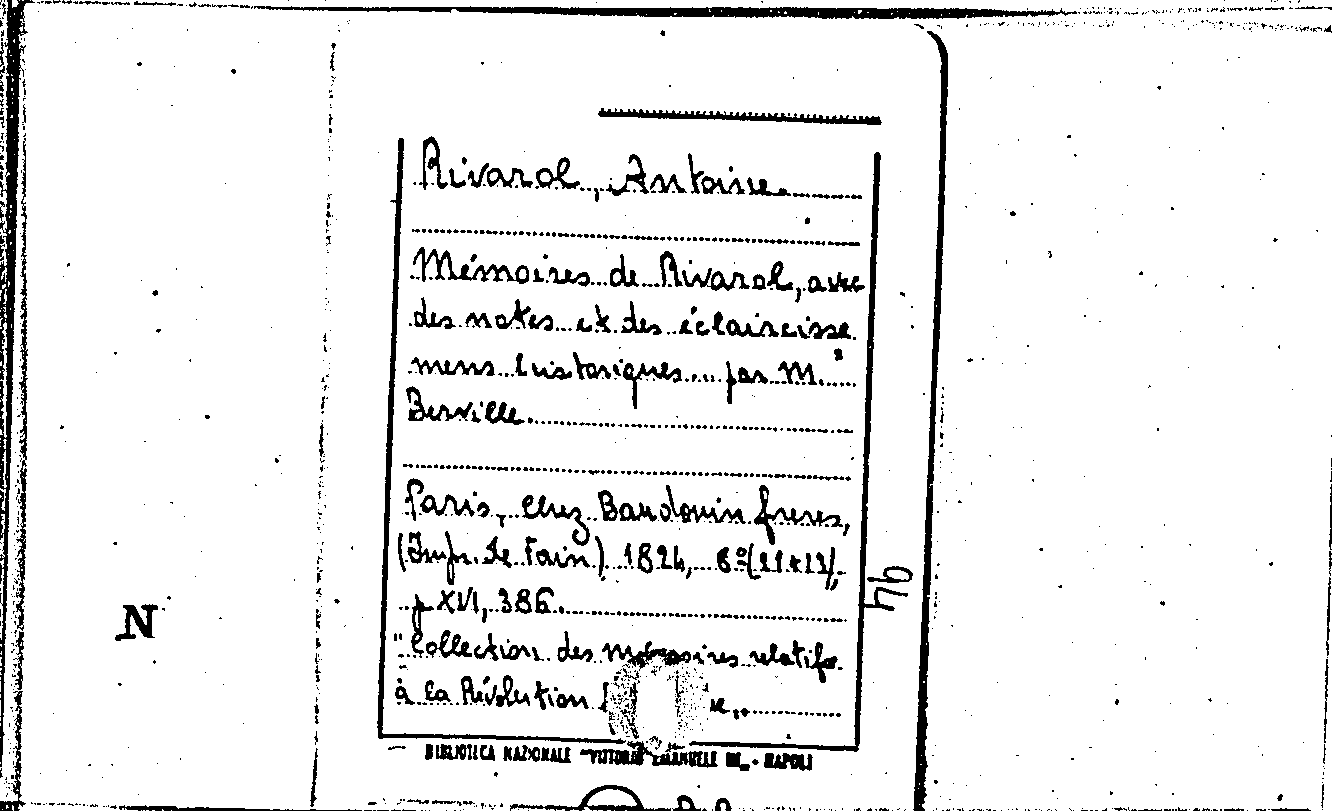 Rivarol, Antoine.
Mémoires de Rivarol, avec
des notes et des éclaircisse
mens historiques... par M.r
Berville.
Paris, chez Baudouin freres,
(Imp. de Fain) 1824, 8º
p XVI, 386.
"Collection des mémoires relatifs
à la Révolution
N
94
BIBLIOTECA NAZIONALE "VITTORIO EMANUELE III" - NAPOLI